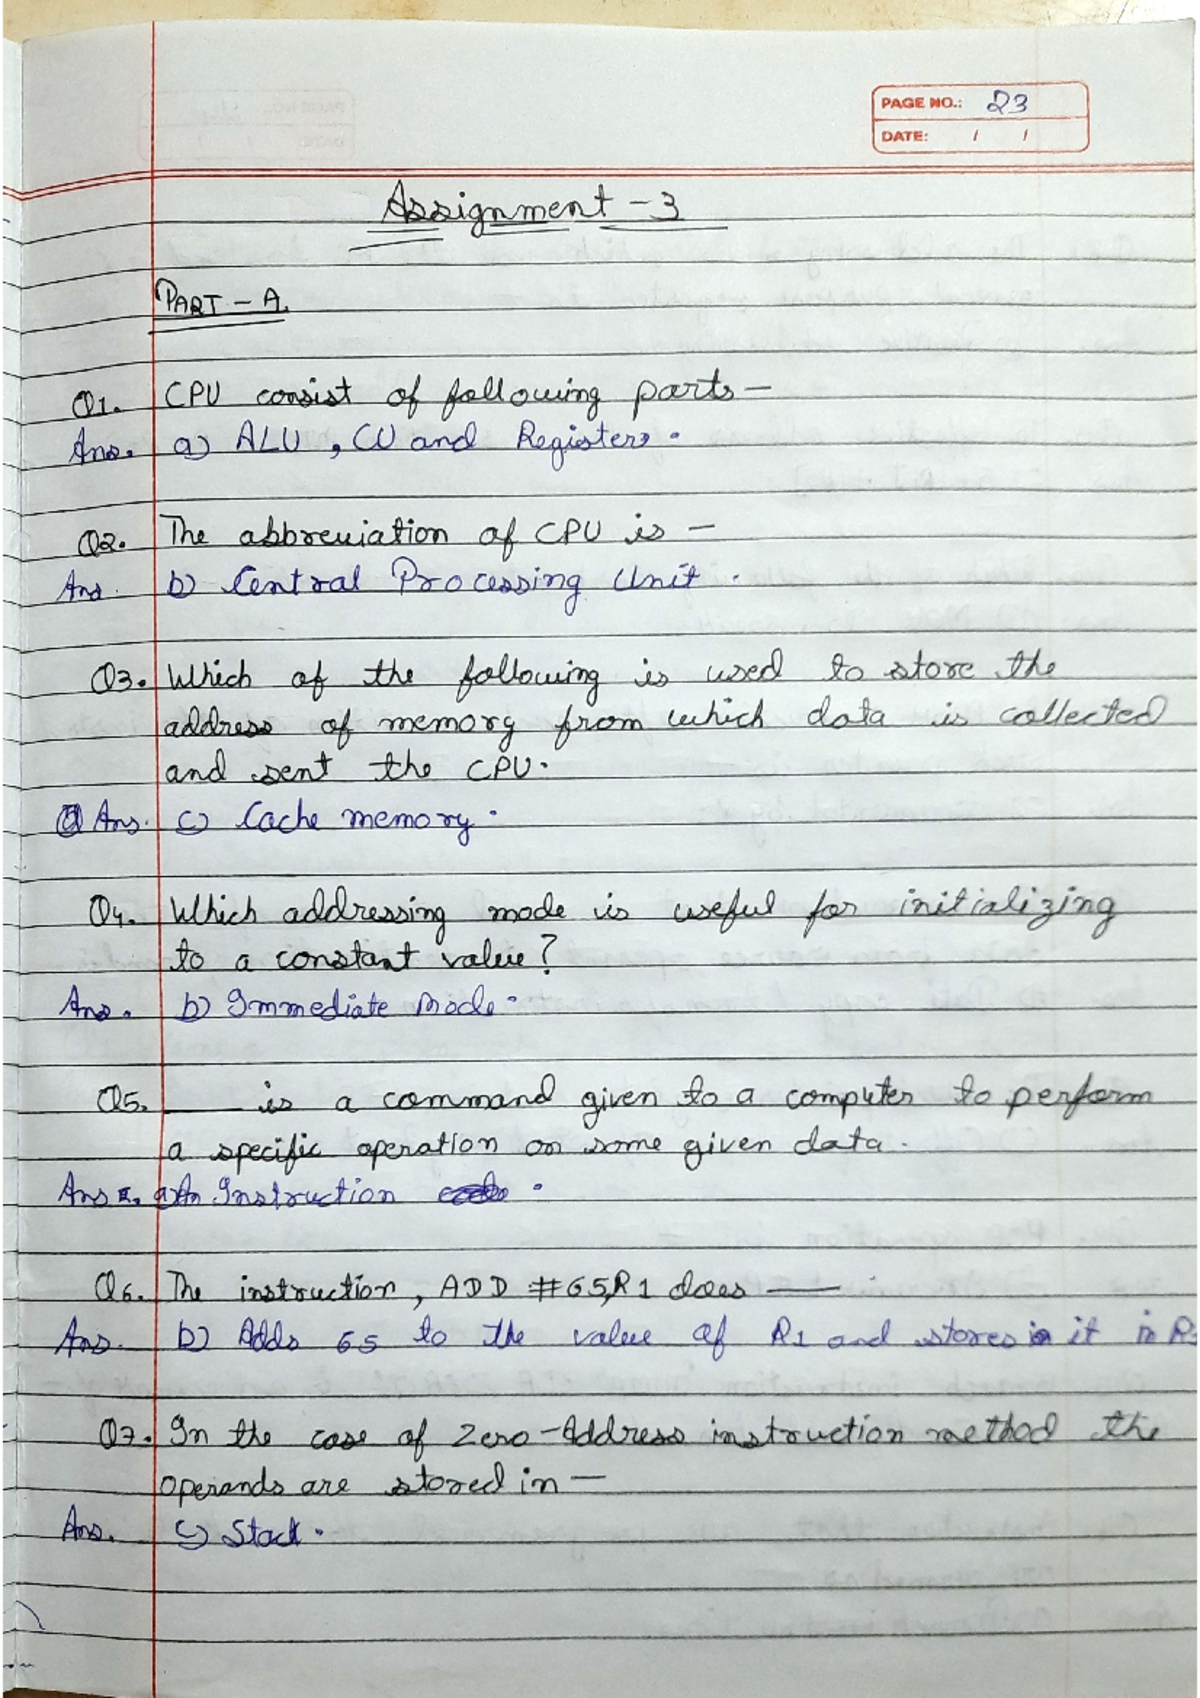 PAGE NO.: 23
DATE: / /
Assignment - 3
PART - A.
Q1. CPU consist of following parts -
Ans. a) ALU, CU and Registers.
Q2. The abbreviation of CPU is -
Ans. b) Central Processing Unit.
Q3. Which of the following is used to store the
address of memory from which data is collected
and sent the CPU.
Ans. c) Cache memory.
Q4. Which addressing mode is useful for initializing
to a constant value?
Ans. b) Immediate Mode.
Q5. ____ is a command given to a computer to perform
a specific operation on some given data.
Ans. a) An Instruction.
Q6. The instruction, ADD #65,R1 does ____
Ans. b) Adds 65 to the value of R1 and stores it in
Q7. In the case of Zero-Address instruction method the
operands are stored in -
Ans. c) Stack.